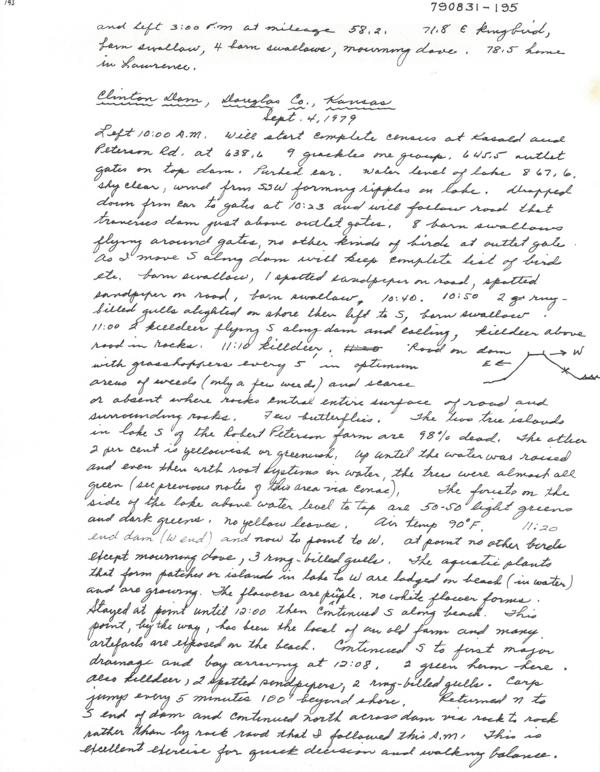 193
790831-195
and left 3:00 P.M at mileage 58.2. 71.8 E Kingbird,
barn swallow, 4 barn swallows, mourning dove. 78.5 home
in Lawrence.
Clinton Dam, Douglas Co., Kansas
Sept. 4, 1979
Left 10:00 A.M. Will start complete census at Kasold and
Peterson Rd. at 638.6 9 grackles one group. 645.5 outlet
gates on top dam. Parked car. Water level of lake 867.6.
sky clear, wind from SSW forming ripples on lake. Dropped
down from car to gates at 10:23 and will follow road that
traverses dam just above outlet gates. 8 barn swallows
flying around gates, no other kinds of birds at outlet gate.
As I move S along dam will keep complete list of bird
etc. barn swallow, 1 spotted sandpiper on road, spotted
sandpiper on road, barn swallow, 10:40. 10:50 2 ring-
billed gulls alighted on shore then left to S, barn swallow.
11:00 2 killdeer flying S along dam and calling, killdeer above
road in rocks. 11:10 killdeer. Road on dam
W
with grasshoppers every 5' in optimum
E
areas of weeds (only a few weeds) and scarce
or absent where rocks entail entire surface of road and
surrounding rocks. Few butterflies. The two tree islands
in lake S of the Robert Peterson farm are 98% dead. The other
2 per cent is yellowish or greenish. Up until the water was raised
and even then with root systems in water, the trees were almost all
green (see previous notes of this area via canoe). The forests on the
side of the lake above water level to top are 50-50 light greens
and dark greens. no yellow leaves. Air temp 90°F. 11:20
end dam (W end) and now to point to W. at point no other birds
except mourning dove, 3 ring-billed gulls. The aquatic plants
that form patches or islands in lake to W are lodged on beach (in water)
and are growing. The flowers are purple. no white flower forms.
Stayed at point until 12:00 then continued S along beach. This
point, by the way, has been the local of an old farm and many
artifacts are exposed on the beach. Continued S to first major
drainage and bay arriving at 12:08. 2 green heron here.
also killdeer, 2 spotted sandpipers, 2 ring-billed gulls. Carp
jump every 5 minutes 100' beyond shore. Returned N to
S end of dam and continued north across dam via rock to rock
rather than by rock road that I followed this A.M. This is
excellent exercise for quick decision and walking balance.